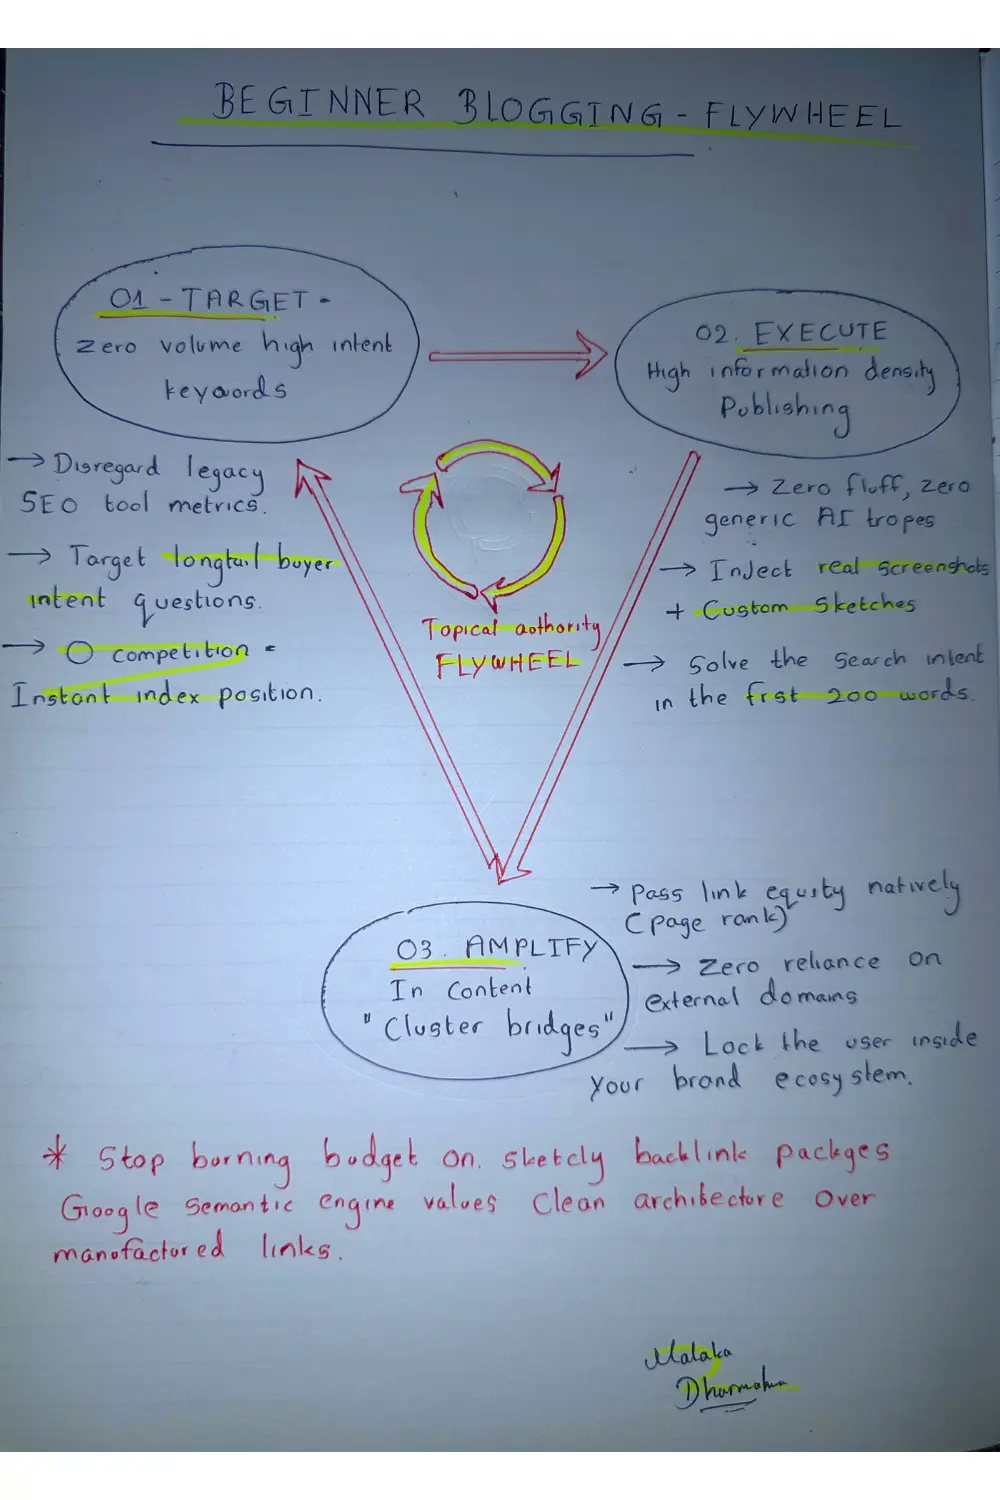 BEGINNER BLOGGING - FLYWHEEL
01 - TARGET -
Zero volume high intent
keywords
02. EXECUTE
High information density
Publishing
→ Disregard legacy
SEO tool metrics.
→ Target longtail buyer
intent questions.
→ 0 competition =
Instant index position.
Topical authority
FLYWHEEL
→ Zero fluff, zero
generic AI tropes
→ Inject real screenshots
+ Custom Sketches
→ Solve the Search intent
in the first 200 words.
03. AMPLIFY
In Content
"Cluster bridges"
→ Pass link equity natively
(page rank)
→ Zero reliance on
external domains
→ Lock the user inside
your brand ecosystem.
* Stop burning budget on. sketcly backlink packges
Google semantic engine values Clean architecture over
manufactured links.
Malaka